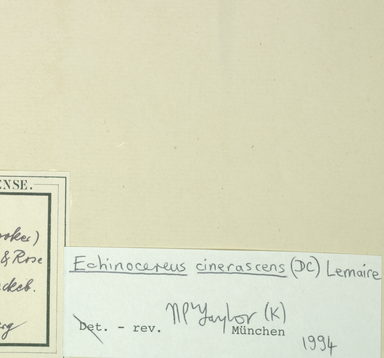 ENSE.
& Rose
Echinocereus cinerascens (DC) Lemaire
NP Taylor (K)
Det. - rev. München
1994